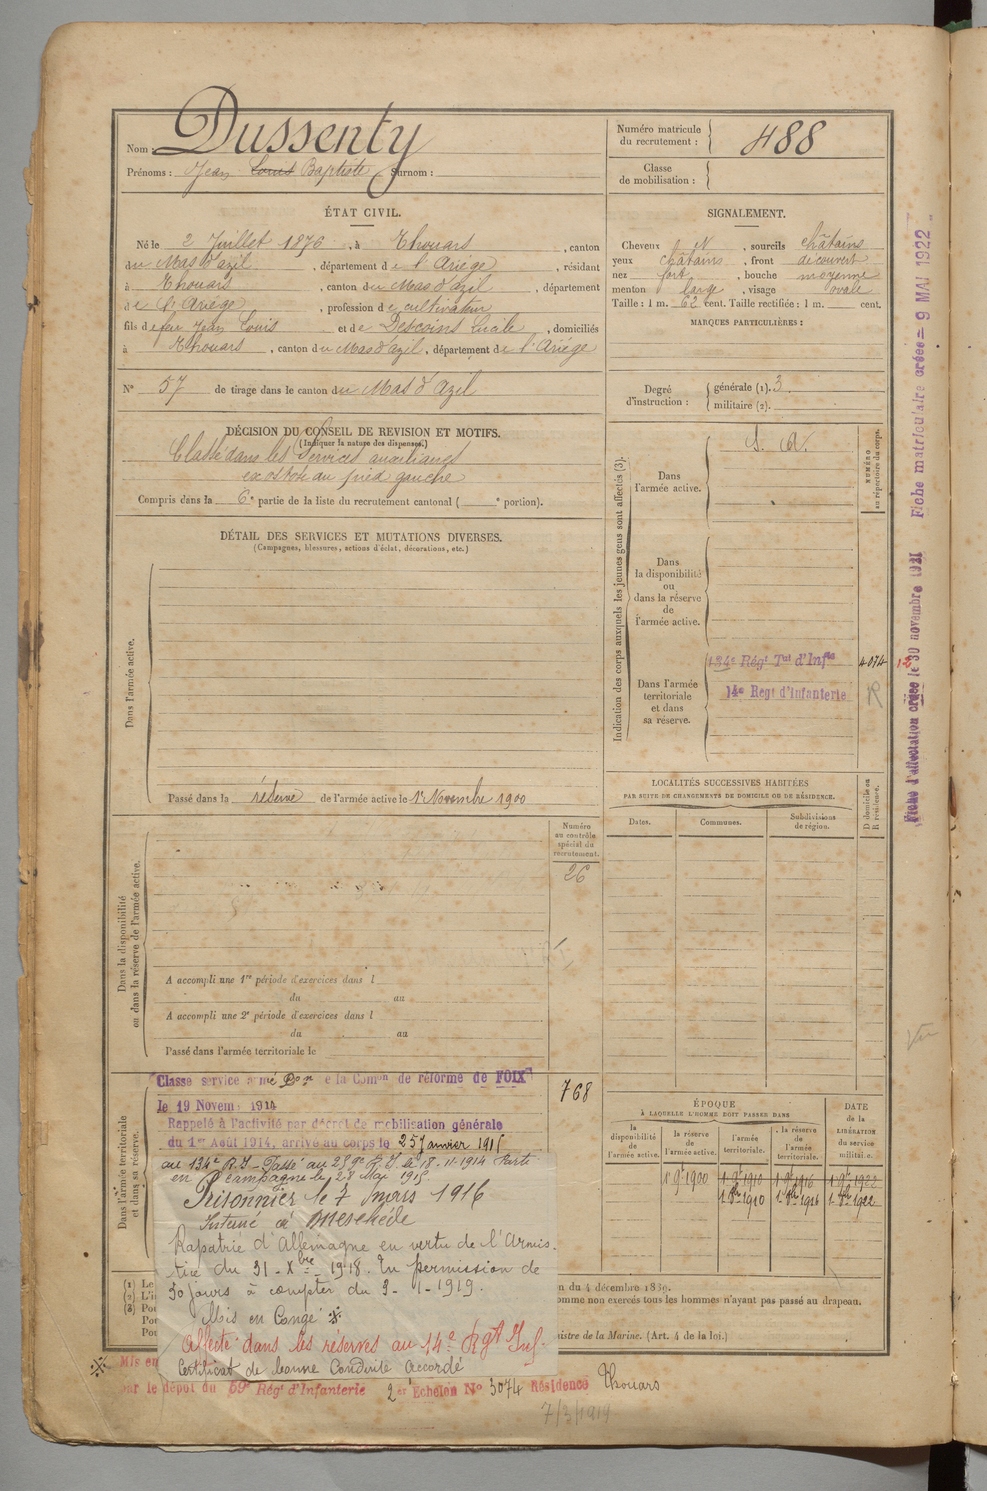 Nom : Dussenty
Prénoms : Jean Louis Baptiste Surnom :
Numéro matricule du recrutement : 488
Classe de mobilisation :
ÉTAT CIVIL.
Né le 2 Juillet 1876, à Thouars, canton
du Mas d'azil, département de l'Ariège, résidant
à Thouars, canton du Mas d'azil, département
de l'Ariège, profession de cultivateur
fils de feu Jean Louis et de Descoins Lucile, domiciliés
à Thouars, canton du Mas d'azil, département de l'Ariège
N° 57 de tirage dans le canton du Mas d'Azil
SIGNALEMENT.
Cheveux N, sourcils châtains
yeux châtains, front découvert
nez fort, bouche moyenne
menton large, visage ovale
Taille : 1 m. 62 cent. Taille rectifiée : 1 m. cent.
MARQUES PARTICULIÈRES :
Degré d'instruction : générale (1). 3
militaire (2).
DÉCISION DU CONSEIL DE REVISION ET MOTIFS.
(Indiquer la nature des dispenses.)
Classé dans les Services auxiliaires
exostose au pied gauche
Compris dans la 6e partie de la liste du recrutement cantonal ( e portion).
DÉTAIL DES SERVICES ET MUTATIONS DIVERSES.
(Campagnes, blessures, actions d'éclat, décorations, etc.)
Dans l'armée active.
Passé dans la réserve de l'armée active le 1er Novembre 1900
Indication des corps auxquels les jeunes gens sont affectés (3).
NUMÉRO au répertoire du corps.
Dans l'armée active.
S. A.
Dans la disponibilité ou dans la réserve de l'armée active.
Dans l'armée territoriale et dans sa réserve.
134e Régt Tal d'Infie 4074
14e Regt d'Infanterie R
LOCALITÉS SUCCESSIVES HABITÉES
PAR SUITE DE CHANGEMENTS DE DOMICILE OU DE RÉSIDENCE.
Dates. Communes. Subdivisions de région.
D domicile ou R résidence.
Numéro au contrôle spécial du recrutement.
26
Dans la disponibilité ou dans la réserve de l'armée active.
A accompli une 1re période d'exercices dans l
du au
A accompli une 2e période d'exercices dans l
du au
Passé dans l'armée territoriale le
Dans l'armée territoriale et dans sa réserve.
Classe service armé Don e la Comon de réforme de FOIX
le 19 Novem. 1914
768
Rappelé à l'activité par décret de mobilisation générale
du 1er Août 1914, arrivé au corps le 25 Janvier 1915
au 134e R.I. Passé au 259e R.I. le 18-11-1914 Parti
en campagne le 28 Mai 1915
Prisonnier le 7 mars 1916
Interné à Meschède
Rapatrié d'Allemagne en vertu de l'Armis-
tice du 31-Xbre 1918. En permission de
30 jours à compter du 3-1-1919.
Mis en Congé ※
Affecté dans les réserves au 14e Rgt Inf.
Certificat de bonne Conduite Accordé
※ Mis en
par le dépôt du 59e Régt d'Infanterie 2er Echelon N° 3074 Résidence Thouars
7/3/1919
ÉPOQUE
À LAQUELLE L'HOMME DOIT PASSER DANS
la disponibilité de l'armée active.
la réserve de l'armée active.
l'armée territoriale.
la réserve de l'armée territoriale.
DATE de la LIBÉRATION du service militaire.
1er 9bre 1900 1er 9bre 1910 1er 9bre 1916 1er 9bre 1922
1er 8bre 1910 1er 8bre 1916 1er 8bre 1922
(1) Le
(2) L'i
(3) Pou
Pou
n du 4 décembre 1889.
omme non exercés tous les hommes n'ayant pas passé au drapeau.
nistre de la Marine. (Art. 4 de la loi.)
Fiche d'attestation créée le 30 novembre 1921
Fiche matriculaire créée = 9 MAI 1922
Vu